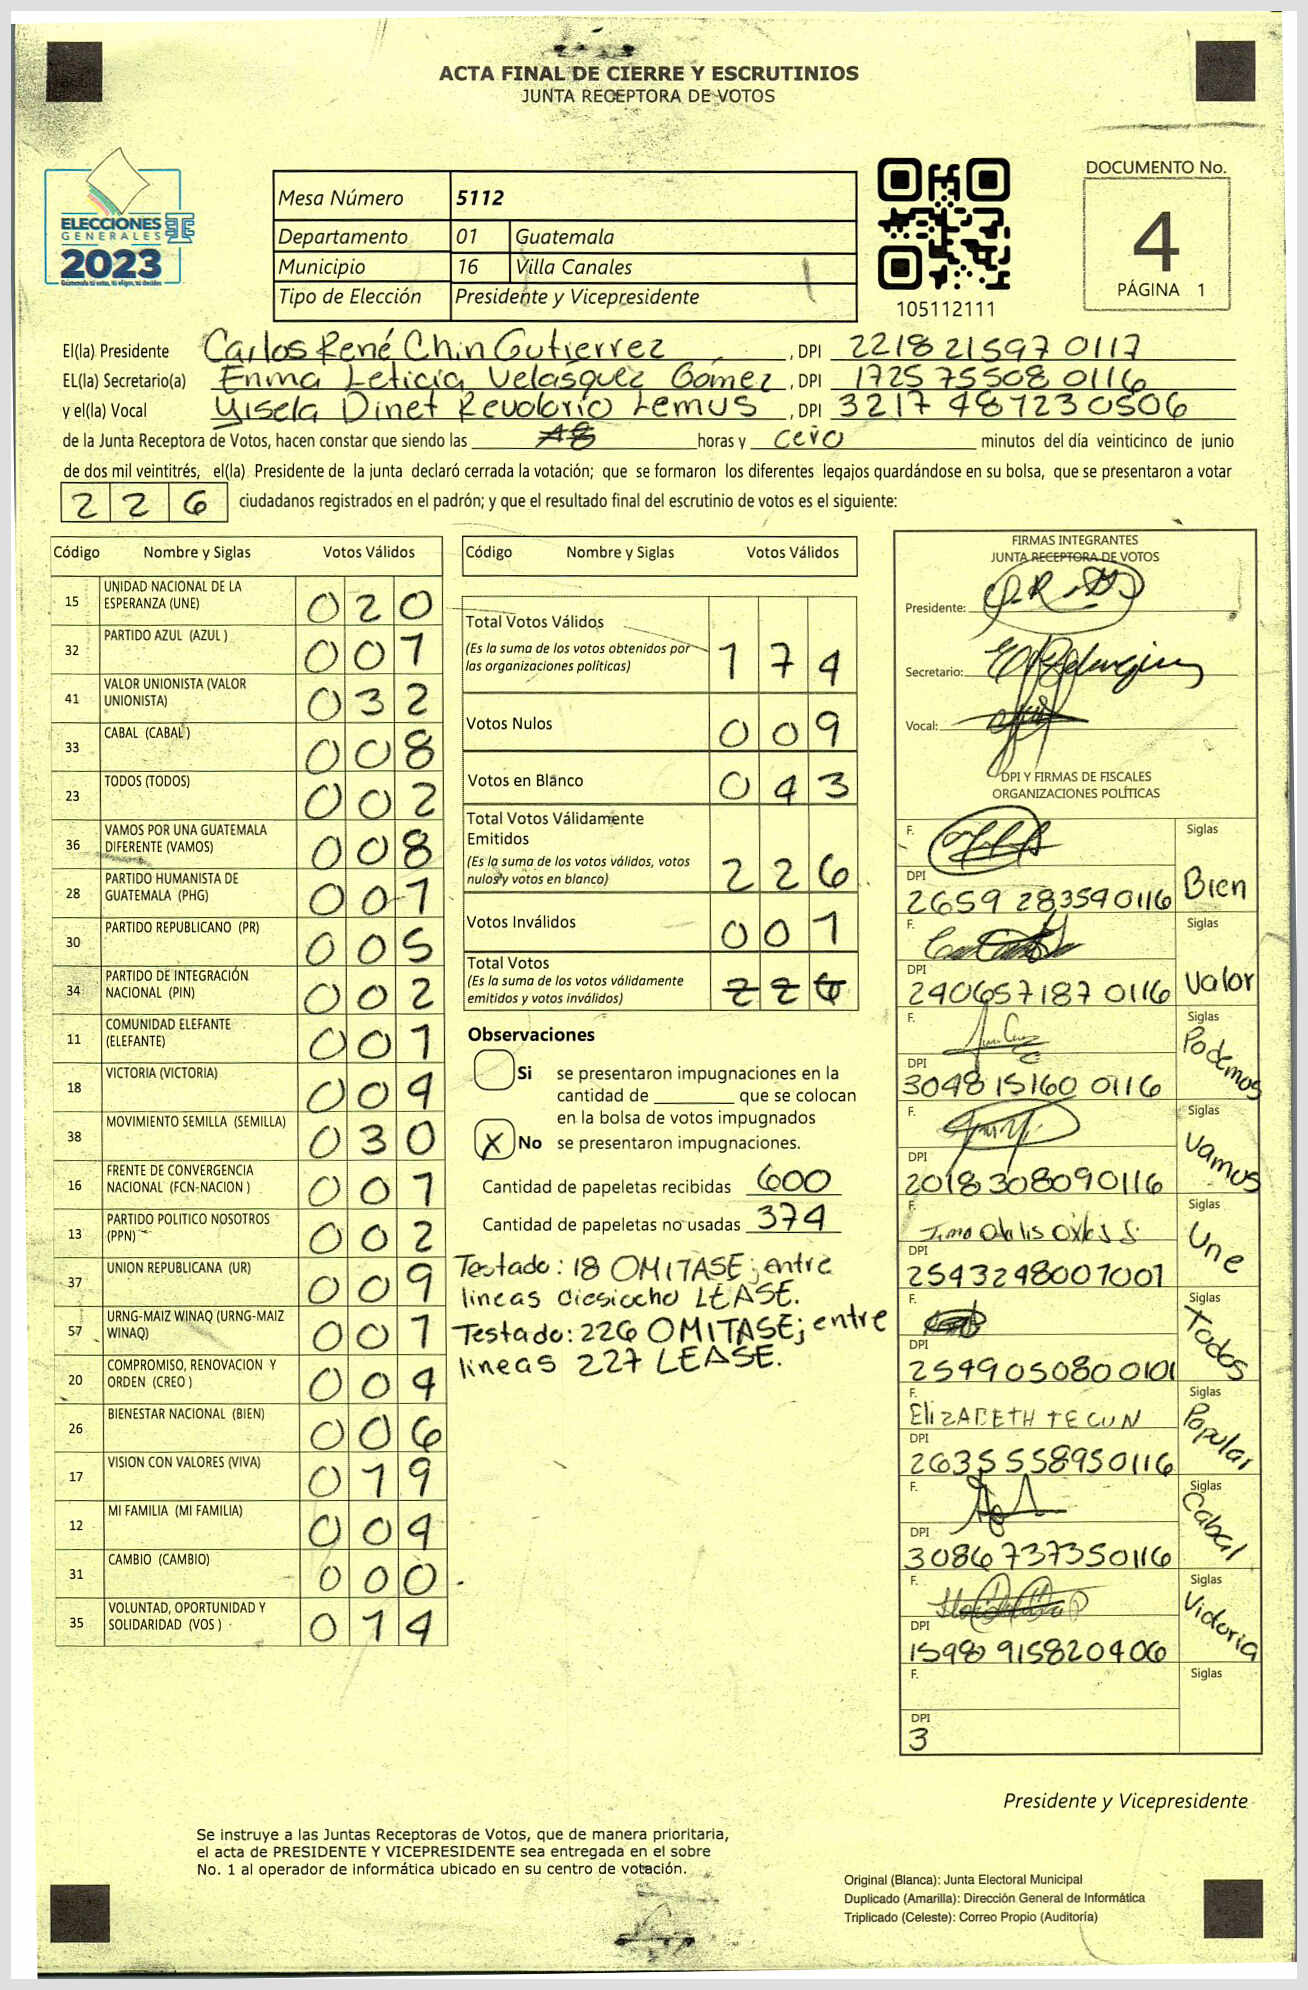 ACTA FINAL DE CIERRE Y ESCRUTINIOS
JUNTA RECEPTORA DE VOTOS
ELECCIONES
GENERALES
2023
Mesa Número 5112
Departamento 01 Guatemala
Municipio 16 Villa Canales
Tipo de Elección Presidente y Vicepresidente
105112111
DOCUMENTO No.
4
PÁGINA 1
El(la) Presidente Carlos René Chin Gutierrez, DPI 2218 21597 0117
EL(la) Secretario(a) Enma Leticia Velásquez Gómez, DPI 1725 75508 0116
y el(la) Vocal Yisela Dinet Revolorio Lemus, DPI 3217 48723 0506
de la Junta Receptora de Votos, hacen constar que siendo las 18 horas y cero minutos del día veinticinco de junio
de dos mil veintitrés, el(la) Presidente de la junta declaró cerrada la votación; que se formaron los diferentes legajos guardándose en su bolsa, que se presentaron a votar
226 ciudadanos registrados en el padrón; y que el resultado final del escrutinio de votos es el siguiente:
Código Nombre y Siglas Votos Válidos
15 UNIDAD NACIONAL DE LA ESPERANZA (UNE) 020
32 PARTIDO AZUL (AZUL ) 001
41 VALOR UNIONISTA (VALOR UNIONISTA) 032
33 CABAL (CABAL ) 008
23 TODOS (TODOS) 002
36 VAMOS POR UNA GUATEMALA DIFERENTE (VAMOS) 008
28 PARTIDO HUMANISTA DE GUATEMALA (PHG) 001
30 PARTIDO REPUBLICANO (PR) 005
34 PARTIDO DE INTEGRACIÓN NACIONAL (PIN) 002
11 COMUNIDAD ELEFANTE (ELEFANTE) 001
18 VICTORIA (VICTORIA) 004
38 MOVIMIENTO SEMILLA (SEMILLA) 030
16 FRENTE DE CONVERGENCIA NACIONAL (FCN-NACION ) 001
13 PARTIDO POLITICO NOSOTROS (PPN) 002
37 UNION REPUBLICANA (UR) 009
57 URNG-MAIZ WINAQ (URNG-MAIZ WINAQ) 001
20 COMPROMISO, RENOVACION Y ORDEN (CREO ) 004
26 BIENESTAR NACIONAL (BIEN) 006
17 VISION CON VALORES (VIVA) 019
12 MI FAMILIA (MI FAMILIA) 004
31 CAMBIO (CAMBIO) 000
35 VOLUNTAD, OPORTUNIDAD Y SOLIDARIDAD (VOS ) 014
Código Nombre y Siglas Votos Válidos
Total Votos Válidos 174
(Es la suma de los votos obtenidos por
las organizaciones políticas)
Votos Nulos 009
Votos en Blanco 043
Total Votos Válidamente
Emitidos
(Es la suma de los votos válidos, votos
nulos y votos en blanco) 226
Votos Inválidos 001
Total Votos
(Es la suma de los votos válidamente
emitidos y votos inválidos) 226
Observaciones
Si se presentaron impugnaciones en la
cantidad de ________ que se colocan
en la bolsa de votos impugnados
X No se presentaron impugnaciones.
Cantidad de papeletas recibidas 600
Cantidad de papeletas no usadas 374
Testado: 18 OMITASE; entre
lineas diesiocho LEASE.
Testado: 226 OMITASE; entre
lineas 227 LEASE.
FIRMAS INTEGRANTES
JUNTA RECEPTORA DE VOTOS
Presidente:
Secretario:
Vocal:
DPI Y FIRMAS DE FISCALES
ORGANIZACIONES POLÍTICAS
F. Siglas
DPI 2659 28359 0116 Bien
F. Siglas
DPI 240657187 0116 Valor
F. Siglas
DPI 3048 15160 0116 Podemos
F. Siglas
DPI 2018 30809 0116 Vamos
F. Siglas
DPI 2543248001001 Une
F. Siglas
DPI 2549050800101 Todos
F. ELIZABETH TECUN Siglas
DPI 2635 558950116 Popular
F. Siglas
DPI 3086737350116 Cabal
F. Siglas
DPI 1598 915820406 Victoria
F. Siglas
DPI 3
Presidente y Vicepresidente
Se instruye a las Juntas Receptoras de Votos, que de manera prioritaria,
el acta de PRESIDENTE Y VICEPRESIDENTE sea entregada en el sobre
No. 1 al operador de informática ubicado en su centro de votación.
Original (Blanca): Junta Electoral Municipal
Duplicado (Amarilla): Dirección General de Informática
Triplicado (Celeste): Correo Propio (Auditoría)